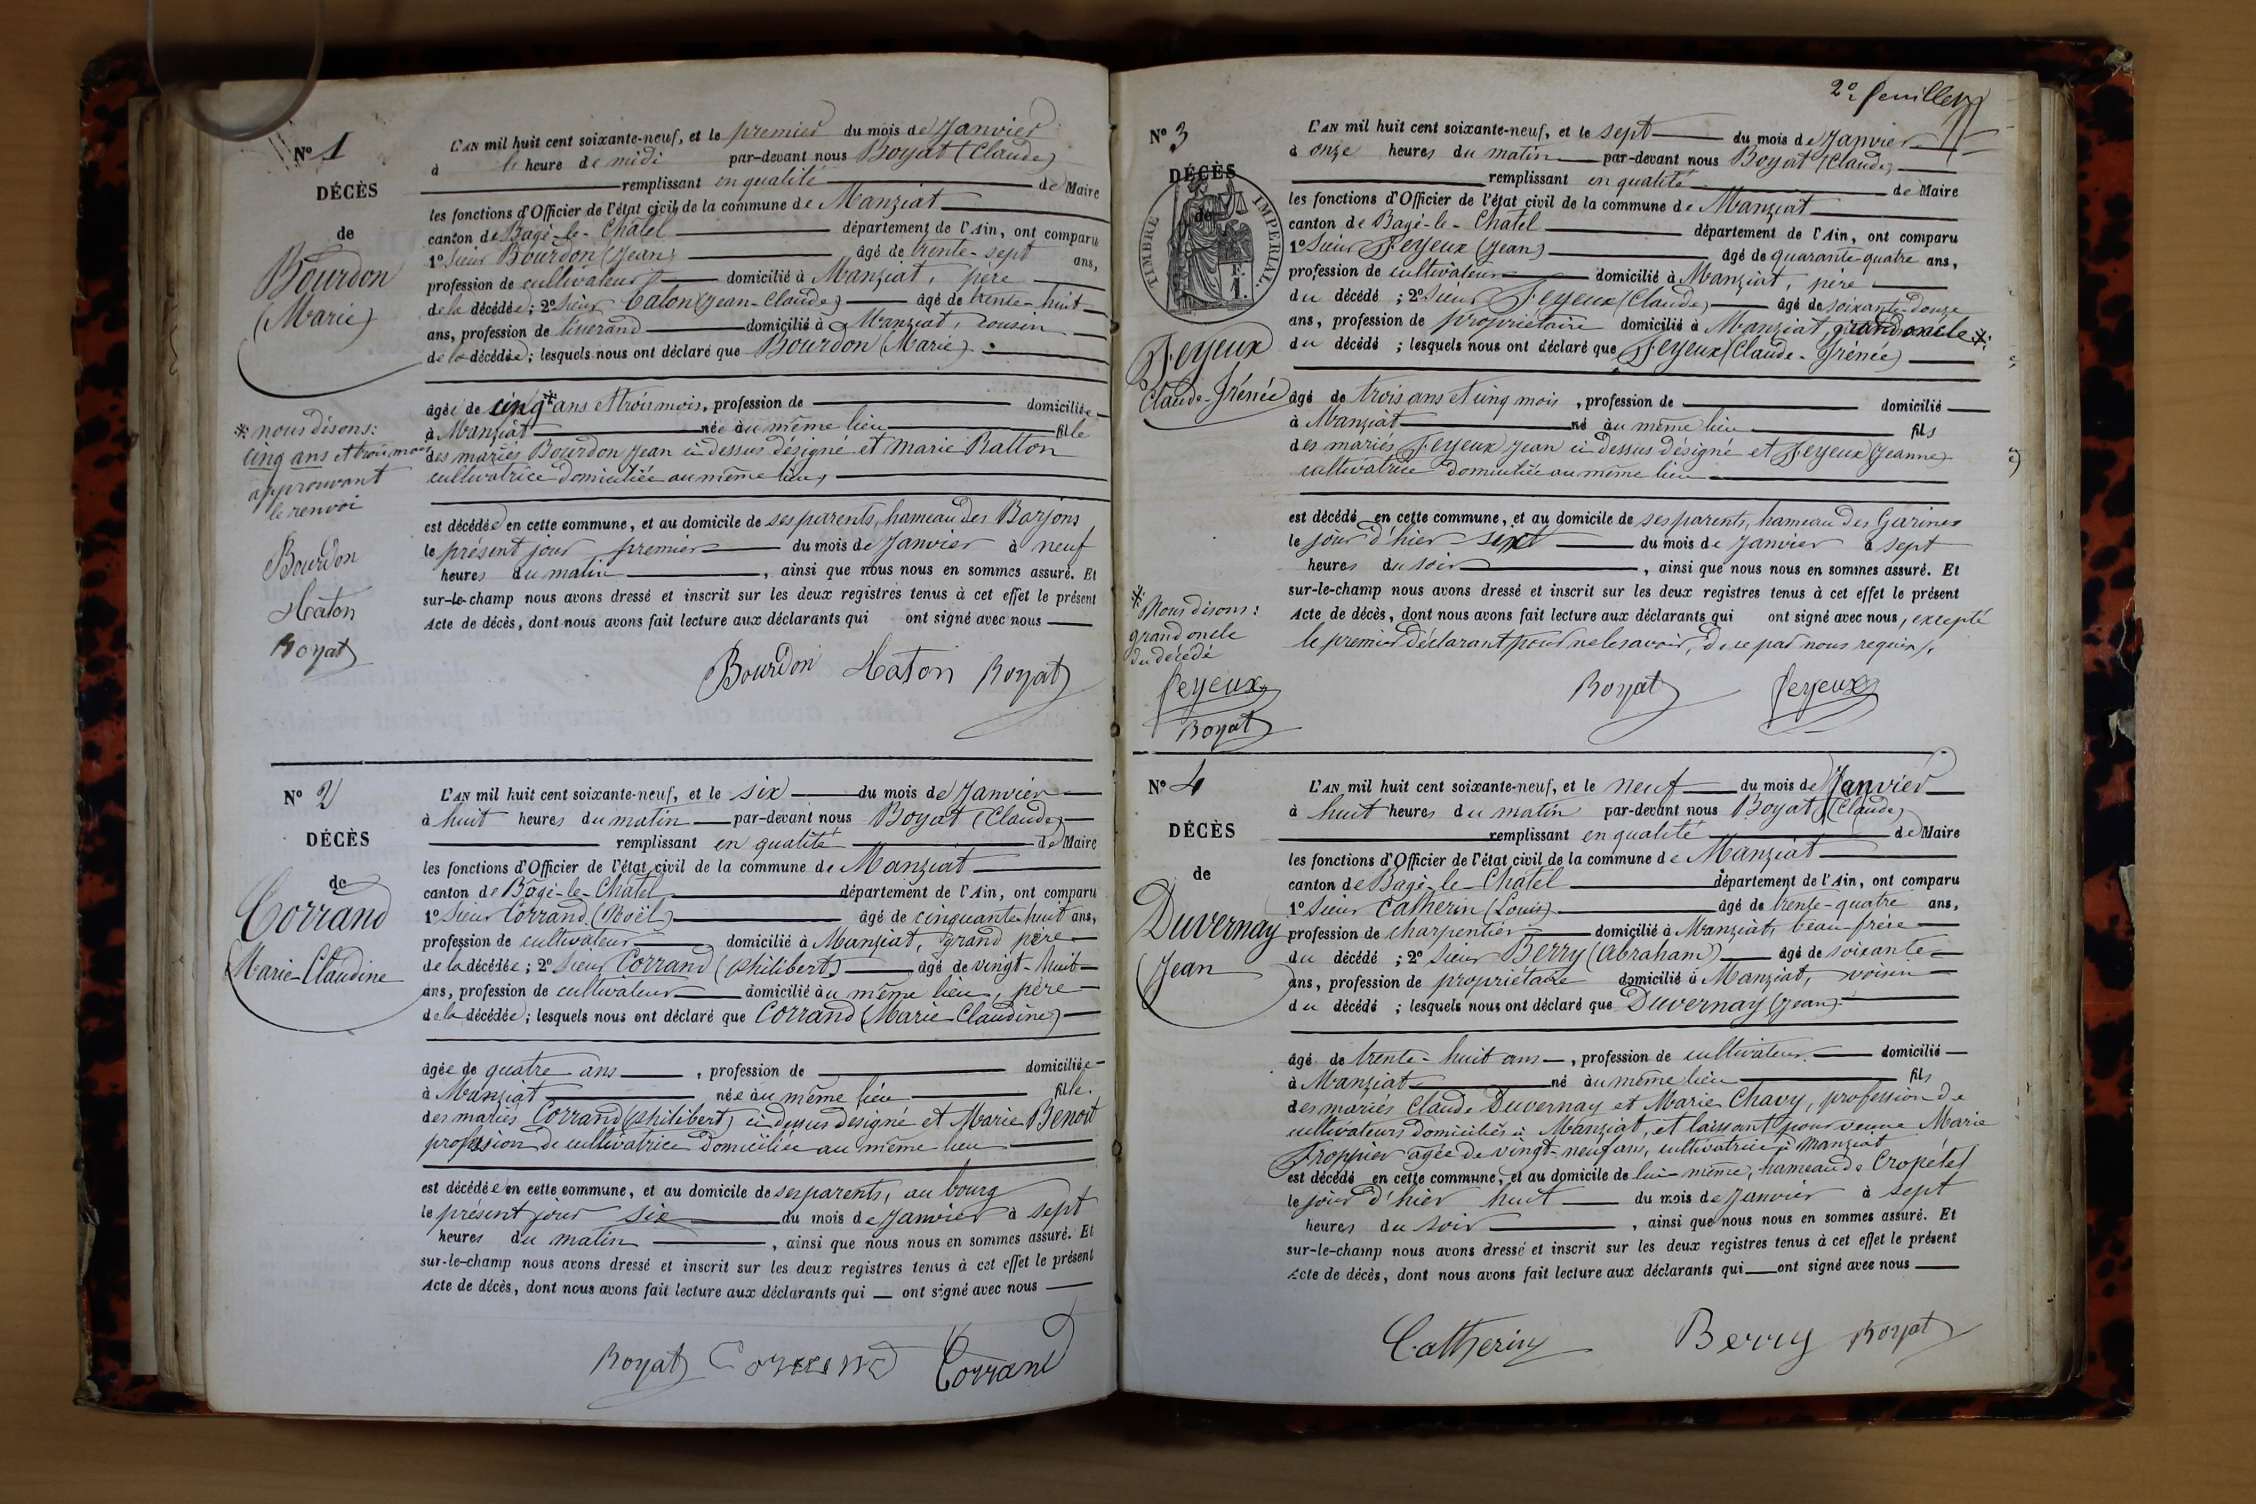 Nº 1
DÉCÈS
de
Bourdon
(Marie)
L'AN mil huit cent soixante-neuf, et le premier du mois de Janvier
à heure de midi par-devant nous Boyat (Claude)
remplissant en qualité de Maire
les fonctions d'Officier de l'état civil de la commune de Manziat
canton de Bagé-le-Châtel département de l'Ain, ont comparu
1º Sieur Bourdon (Jean) âgé de trente-sept ans,
profession de cultivateur domicilié à Manziat, père
de la décédée; 2º Sieur Caton (Jean-Claude) âgé de trente-huit
ans, profession de tisserand domicilié à Manziat, cousin
de la décédée; lesquels nous ont déclaré que Bourdon (Marie)
âgée de cinq* ans et trois mois, profession de domiciliée
à Manziat née au même lieu fille
des mariés Bourdon Jean ci dessus désigné et Marie Ratton
cultivatrice domiciliée au même lieu,
est décédée en cette commune, et au domicile de ses parents, hameau des Barjons
le présent jour premier du mois de Janvier à neuf
heures du matin, ainsi que nous nous en sommes assuré. Et
sur-le-champ nous avons dressé et inscrit sur les deux registres tenus à cet effet le présent
Acte de décès, dont nous avons fait lecture aux déclarants qui ont signé avec nous
* nous disons:
cinq ans et trois mois
approuvant
le renvoi
Bourdon
Caton
Boyat
Bourdon Caton Boyat
Nº 2
DÉCÈS
de
Corrand
Marie-Claudine
L'AN mil huit cent soixante-neuf, et le six du mois de Janvier
à huit heures du matin par-devant nous Boyat (Claude)
remplissant en qualité de Maire
les fonctions d'Officier de l'état civil de la commune de Manziat
canton de Bagé-le-Châtel département de l'Ain, ont comparu
1º Sieur Corrand (Noël) âgé de cinquante-huit ans,
profession de cultivateur domicilié à Manziat, grand père
de la décédée; 2º Sieur Corrand (Philibert) âgé de vingt-huit
ans, profession de cultivateur domicilié au même lieu, père
de la décédée; lesquels nous ont déclaré que Corrand (Marie-Claudine)
âgée de quatre ans, profession de domiciliée
à Manziat née au même lieu fille.
des mariés Corrand (Philibert) ci dessus désigné et Marie Benoit
profession de cultivatrice domiciliée au même lieu
est décédée en cette commune, et au domicile de ses parents, au bourg
le présent jour six du mois de Janvier à sept
heures du matin, ainsi que nous nous en sommes assuré. Et
sur-le-champ nous avons dressé et inscrit sur les deux registres tenus à cet effet le présent
Acte de décès, dont nous avons fait lecture aux déclarants qui ont signé avec nous
Boyat Corrand Corrand
2e feuillet
Nº 3
DÉCÈS
de
TIMBRE IMPERIAL.
Feyeux
Claude-Irénée
L'AN mil huit cent soixante-neuf, et le sept du mois de Janvier
à onze heures du matin par-devant nous Boyat (Claude)
remplissant en qualité de Maire
les fonctions d'Officier de l'état civil de la commune de Manziat
canton de Bagé-le-Châtel département de l'Ain, ont comparu
1º Sieur Feyeux (Jean) âgé de quarante quatre ans,
profession de cultivateur domicilié à Manziat, père
du décédé; 2º Sieur Feyeux (Claude) âgé de soixante-douze
ans, profession de propriétaire domicilié à Manziat, grand oncle *
du décédé; lesquels nous ont déclaré que Feyeux (Claude-Irénée)
âgé de trois ans et cinq mois, profession de domicilié
à Manziat né au même lieu fils
des mariés Feyeux Jean ci dessus désigné et Feyeux (Jeanne)
cultivatrice domiciliée au même lieu
est décédé en cette commune, et au domicile de ses parents, hameau des Garines
le jour d'hier six du mois de Janvier à sept
heures du soir, ainsi que nous nous en sommes assuré. Et
sur-le-champ nous avons dressé et inscrit sur les deux registres tenus à cet effet le présent
Acte de décès, dont nous avons fait lecture aux déclarants qui ont signé avec nous, excepté
le premier déclarant pour ne le savoir, de ce par nous requis.
* Nous disons:
grand oncle
du décédé
feyeux
Boyat
Boyat feyeux
Nº 4
DÉCÈS
de
Duvernay
Jean
L'AN mil huit cent soixante-neuf, et le neuf du mois de Janvier
à huit heures du matin par-devant nous Boyat (Claude)
remplissant en qualité de Maire
les fonctions d'Officier de l'état civil de la commune de Manziat
canton de Bagé-le-Châtel département de l'Ain, ont comparu
1º Sieur Catherin (Louis) âgé de trente-quatre ans,
profession de charpentier domicilié à Manziat, beau-frère
du décédé; 2º Sieur Berry (Abraham) âgé de soixante
ans, profession de propriétaire domicilié à Manziat, voisin
du décédé; lesquels nous ont déclaré que Duvernay (Jean)
âgé de trente-huit ans, profession de cultivateur domicilié
à Manziat né au même lieu fils
des mariés Claude Duvernay et Marie Chavy, profession de
cultivateurs domiciliés à Manziat, et laissant pour veuve Marie
âgée de vingt-neuf ans, cultivatrice à Manziat
est décédé en cette commune, et au domicile de lui-même, hameau de Cropétet
le jour d'hier huit du mois de Janvier à sept
heures du soir, ainsi que nous nous en sommes assuré. Et
sur-le-champ nous avons dressé et inscrit sur les deux registres tenus à cet effet le présent
Acte de décès, dont nous avons fait lecture aux déclarants qui ont signé avec nous
Catherin Berry Boyat